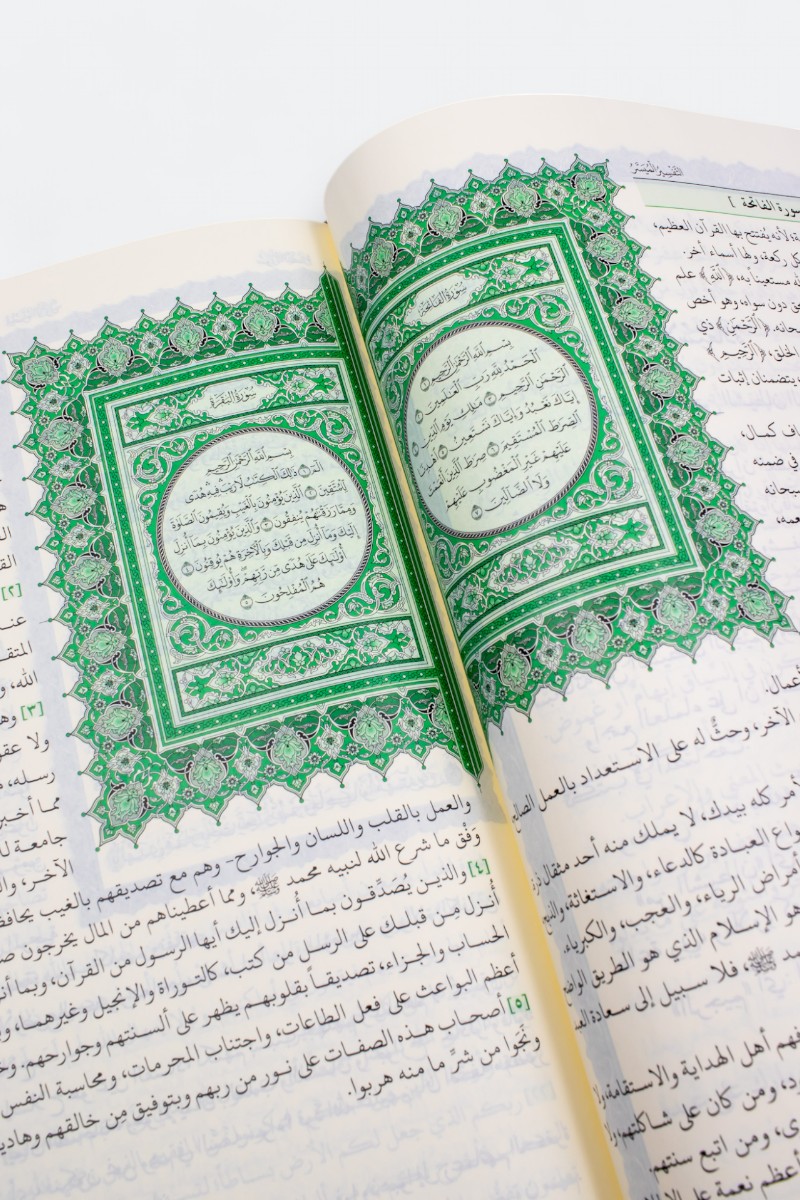 التفسير الميسر
سورة الفاتحة ]
لأنه يُفتتح بها القرآن العظيم،
كل ركعة، ولها أسماء أخر.
مستعيناً به، ﴿اللَّهِ﴾ علم
دون سواه، وهو أخص
﴿الرَّحْمَٰنِ﴾ ذي
﴿الرَّحِيمِ﴾
يتضمنان إثبات
كمال،
في ضمنه
سُورَةُ الفَاتِحَةِ
بِسْمِ اللَّهِ الرَّحْمَٰنِ الرَّحِيمِ ١
الْحَمْدُ لِلَّهِ رَبِّ الْعَالَمِينَ ٢
الرَّحْمَٰنِ الرَّحِيمِ ٣ مَالِكِ يَوْمِ الدِّينِ ٤
إِيَّاكَ نَعْبُدُ وَإِيَّاكَ نَسْتَعِينُ ٥ اهْدِنَا
الصِّرَاطَ الْمُسْتَقِيمَ ٦ صِرَاطَ الَّذِينَ أَنْعَمْتَ
عَلَيْهِمْ غَيْرِ الْمَغْضُوبِ عَلَيْهِمْ
وَلَا الضَّالِّينَ ٧
الآخر، وحثٌّ له على الاستعداد بالعمل الصالح
أمر كله بيدك، لا يملك منه أحد مثقال ذرة
العبادة كالدعاء، والاستغاثة، والذبح
أمراض الرياء، والعجب، والكبرياء.
هو الإسلام الذي هو الطريق الواضح
ﷺ، فلا سبيل إلى سعادة
أهل الهداية والاستقامة، ولا
ومن كان على شاكلتهم، ولا
ومن اتبع سنتهم.
أعظم نعمة على
سُورَةُ البَقَرَةِ
بِسْمِ اللَّهِ الرَّحْمَٰنِ الرَّحِيمِ
الم ١ ذَٰلِكَ الْكِتَابُ لَا رَيْبَ فِيهِ هُدًى
لِلْمُتَّقِينَ ٢ الَّذِينَ يُؤْمِنُونَ بِالْغَيْبِ وَيُقِيمُونَ الصَّلَاةَ
وَمِمَّا رَزَقْنَاهُمْ يُنْفِقُونَ ٣ وَالَّذِينَ يُؤْمِنُونَ بِمَا أُنْزِلَ
إِلَيْكَ وَمَا أُنْزِلَ مِنْ قَبْلِكَ وَبِالْآخِرَةِ هُمْ يُوقِنُونَ ٤
أُولَٰئِكَ عَلَىٰ هُدًى مِنْ رَبِّهِمْ وَأُولَٰئِكَ
هُمُ الْمُفْلِحُونَ ٥
[٢]
[٣]
ولا
رسله،
مما
جامعة
الآخر،
والعمل بالقلب واللسان والجوارح- وهم مع تصديقهم بالغيب
وَفْق ما شرع الله لنبيه محمد ﷺ، ومما أعطيناهم من المال يخرجون
[٤] والذين يُصَدِّقون بما أُنزل إليك أيها الرسول من القرآن، وبما
أُنزل مِن قبلك على الرسل من كتب، كالتوراة والإنجيل وغيرهما،
الحساب والجزاء، تصديقاً بقلوبهم يظهر على ألسنتهم وجوارحهم.
أعظم البواعث على فعل الطاعات، واجتناب المحرمات، ومحاسبة النفس
[٥] أصحاب هذه الصفات على نور من ربهم وبتوفيق مِن خالقهم
ونَجَوا من شرِّ ما منه هربوا.